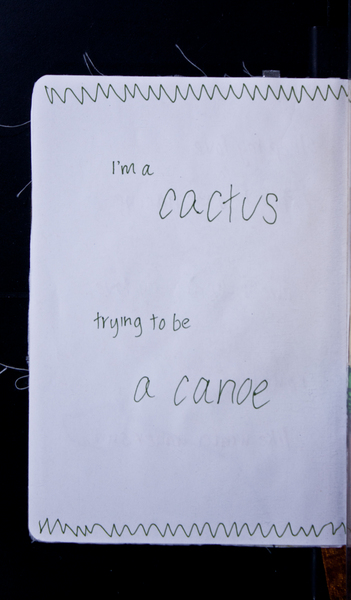 I'm a
cactus
trying to be
a canoe